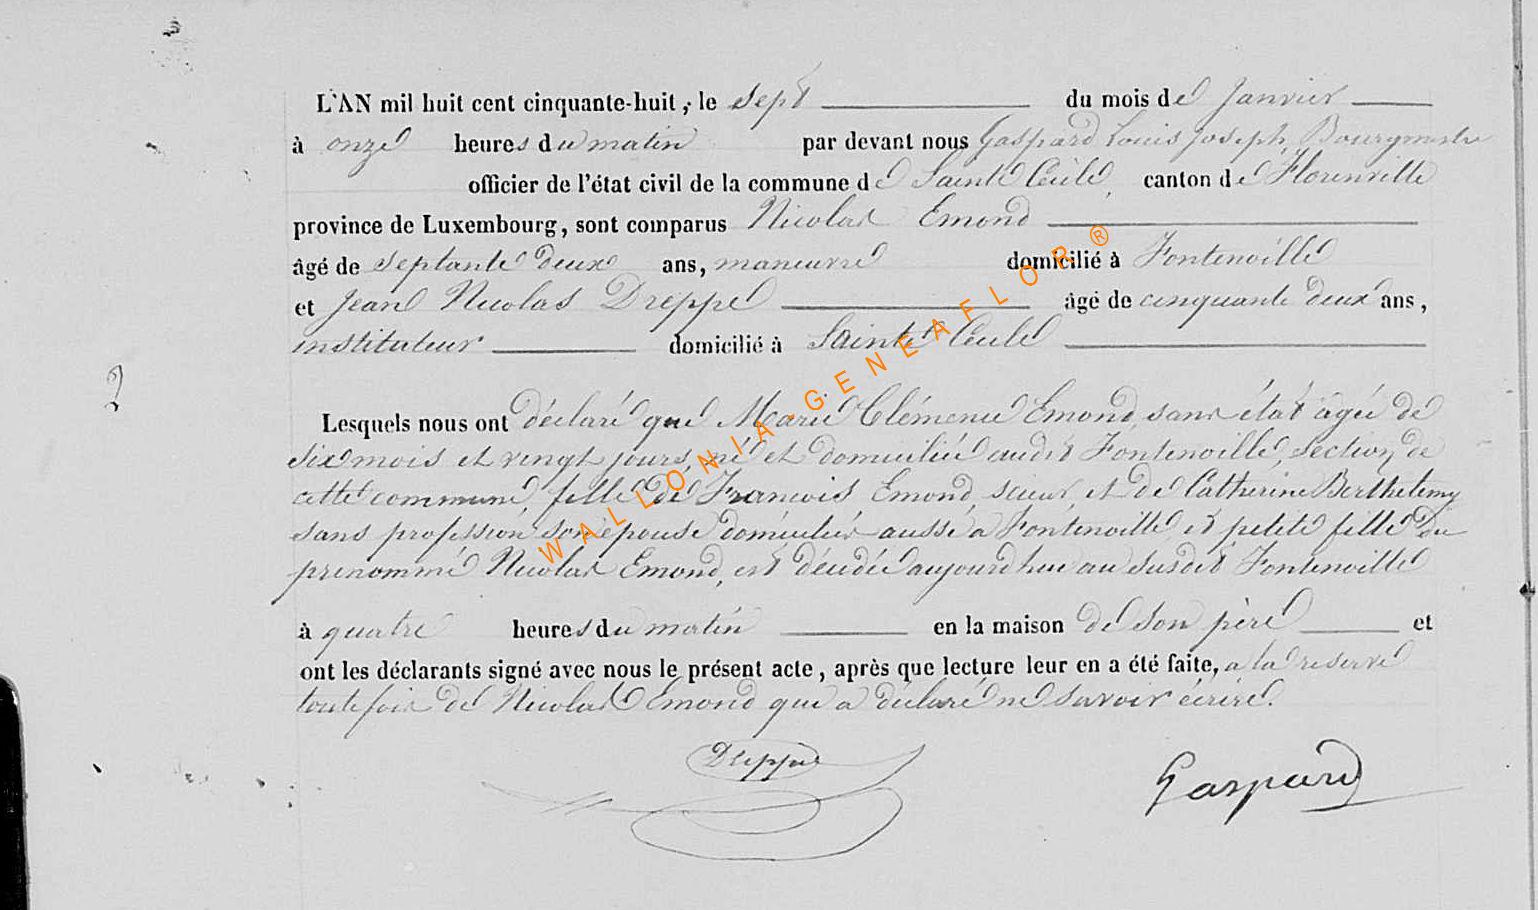 L'AN mil huit cent cinquante-huit, le sept du mois de Janvier
à onze heures du matin par devant nous Gaspard Louis Joseph, Bourgmestre
officier de l'état civil de la commune de Sainte Cécile, canton de Florenville
province de Luxembourg, sont comparus Nicolas Emond
âgé de septante deux ans, maneuvre domicilié à Fontenoille
et Jean Nicolas Dreppe âgé de cinquante deux ans,
instituteur domicilié à Sainte Cécile
2
Lesquels nous ont déclaré que Marie Clémence Emond, sans état âgée de
six mois et vingt jours, né et domiciliée audit Fontenoille, section de
cette commune, fille de Francois Emond scieur et de Catherine Berthelemy
sans profession son épouse domiciliés aussi à Fontenoille et petite fille du
prénommé Nicolas Emond, est décédée aujourd'hui au susdit Fontenoille
à quatre heures du matin en la maison de son père et
ont les déclarants signé avec nous le présent acte, après que lecture leur en a été faite, a la reserve
toutefois de Nicolas Emond qui a déclaré ne savoir écrire.
Dreppe
Gaspard
WALLONIA-GENEAFLOR®